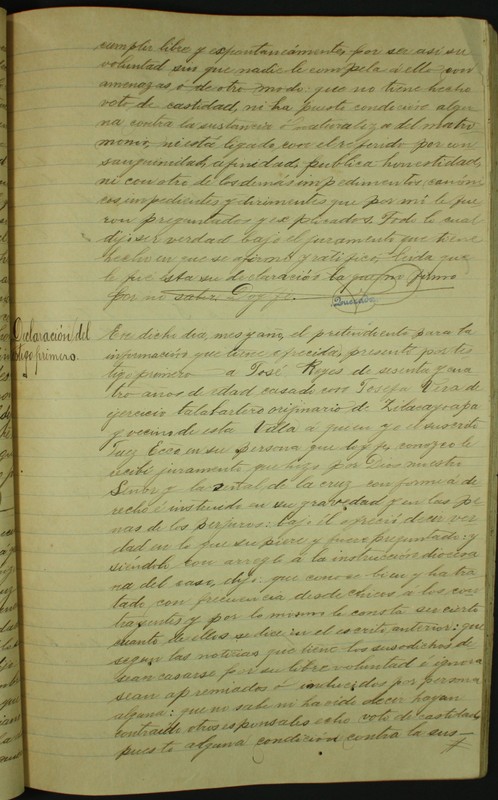 cumplir libre y espontaneamente, por ser así su
voluntad sin que nadie le compela á ello con
amenazas ó de otro modo: que no tiene hecho
voto de castidad, ni ha puesto condición algu
na contra la sustancia ó naturaleza del matri
monio, ni está ligada con el referido por con
sanguinidad, afinidad, publica honestidad,
ni con otro de los demás impedimentos, canóni
cos impedientes y dirimentes que por mi le fue
ron preguntados y explicados. Todo lo cual
dijo ser verdad bajo el juramento que tiene
hecho en que se afirmó y ratificó, leida que
le fue esta su declaración la que no firmó
por no saber. Doy fé.
Quezada
Declaración del
tigo primero.
En dicho dia, mes y año, el pretendiente para la
información que tiene ofrecida, presentó por tes
tigo primero á José Reyes de sesenta y cua
tro años de edad casado con Josefa Vera de
ejercicio talabartero originario de Silacayoapa
y vecino de esta Villa á quien yo el suscrito
Ecco en su persona que doy fé, conozco le
recibí juramento que hizo por Dios nuestro
Señor y la señal de la cruz conforme á de
recho é instruido en su gravedad y en las pe
nas de los perjuros: bajo él ofreció decir ver
dad en lo que supiere y fuere preguntado: y
siendolo con arreglo á la instrucción diocesa
na del caso, dijo: que conoce bien y ha tra
tado con frecuencia desde chicos á los con
trayentes y por lo mismo le consta ser cierto
cuanto de ellos se dice en el escrito anterior: que
segun las noticias que tiene los susodichos de
sean casarse por su libre voluntad é ignora
sean apremiados ó inducidos por persona
alguna: que no sabe ni ha oido decir hayan
contraido otros esponsales echo voto de castidad
puesto alguna condición contra la sus-